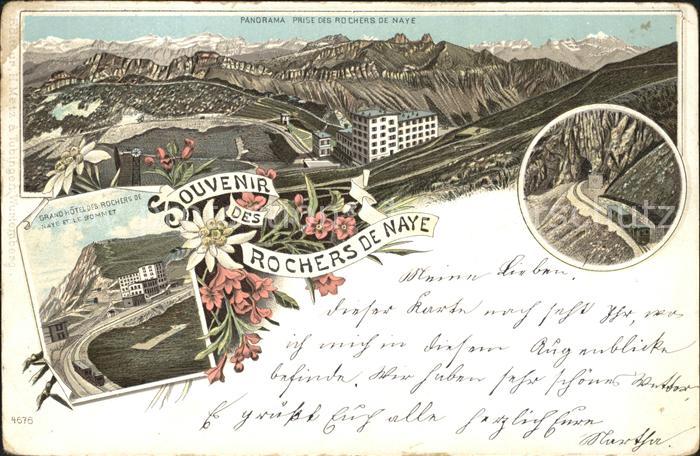 PANORAMA PRISE DES ROCHERS DE NAYE
GRAND HÔTEL DES ROCHERS DE
NAYE ET LE SOMMET
SOUVENIR
DES
ROCHERS DE NAYE
Meine Lieben.
Dieser Karte nach seht Ihr, wo
ich mich in diesem Augenblicke
befinde. Wir haben sehr schönes Wetter
Es grüßt Euch alle herzlich Eure
Martha.
4676